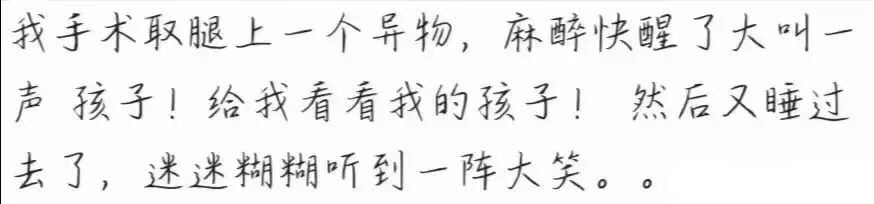 我手术取腿上一个异物，麻醉快醒了大叫一
声 孩子！给我看看我的孩子！ 然后又睡过
去了，迷迷糊糊听到一阵大笑。。